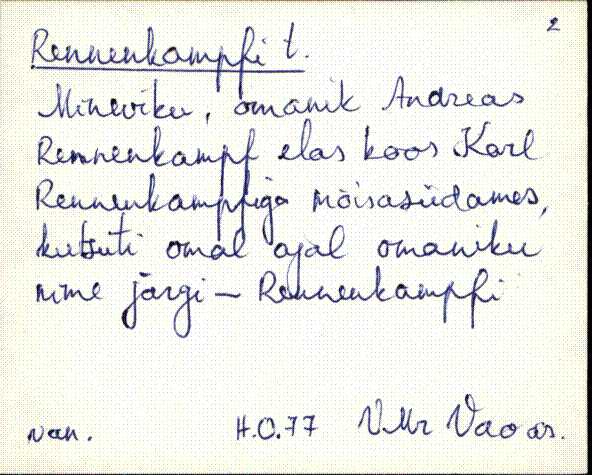 2
Rennenkampfi t.
Mineviku, omanik Andreas
Rennenkampf elas koos Karl
Rennenkampfiga mõisasüdames,
kutsuti omal ajal omaniku
nime järgi – Rennenkampfi
van. H.O.77 VMr Vao as.